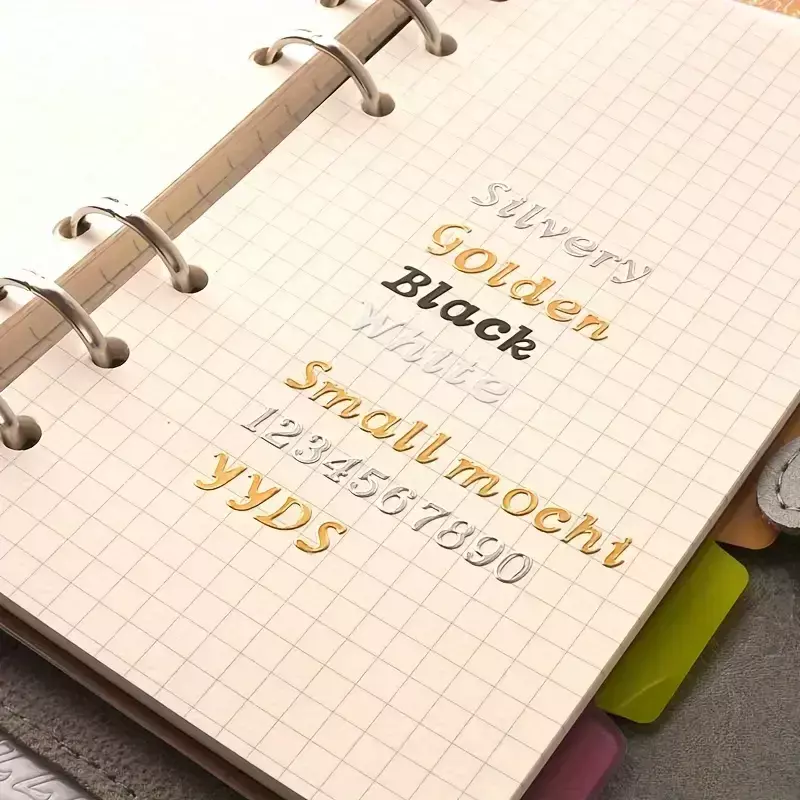 Silvery
Golden
Black
White
Small mochi
1234567890
YYDS